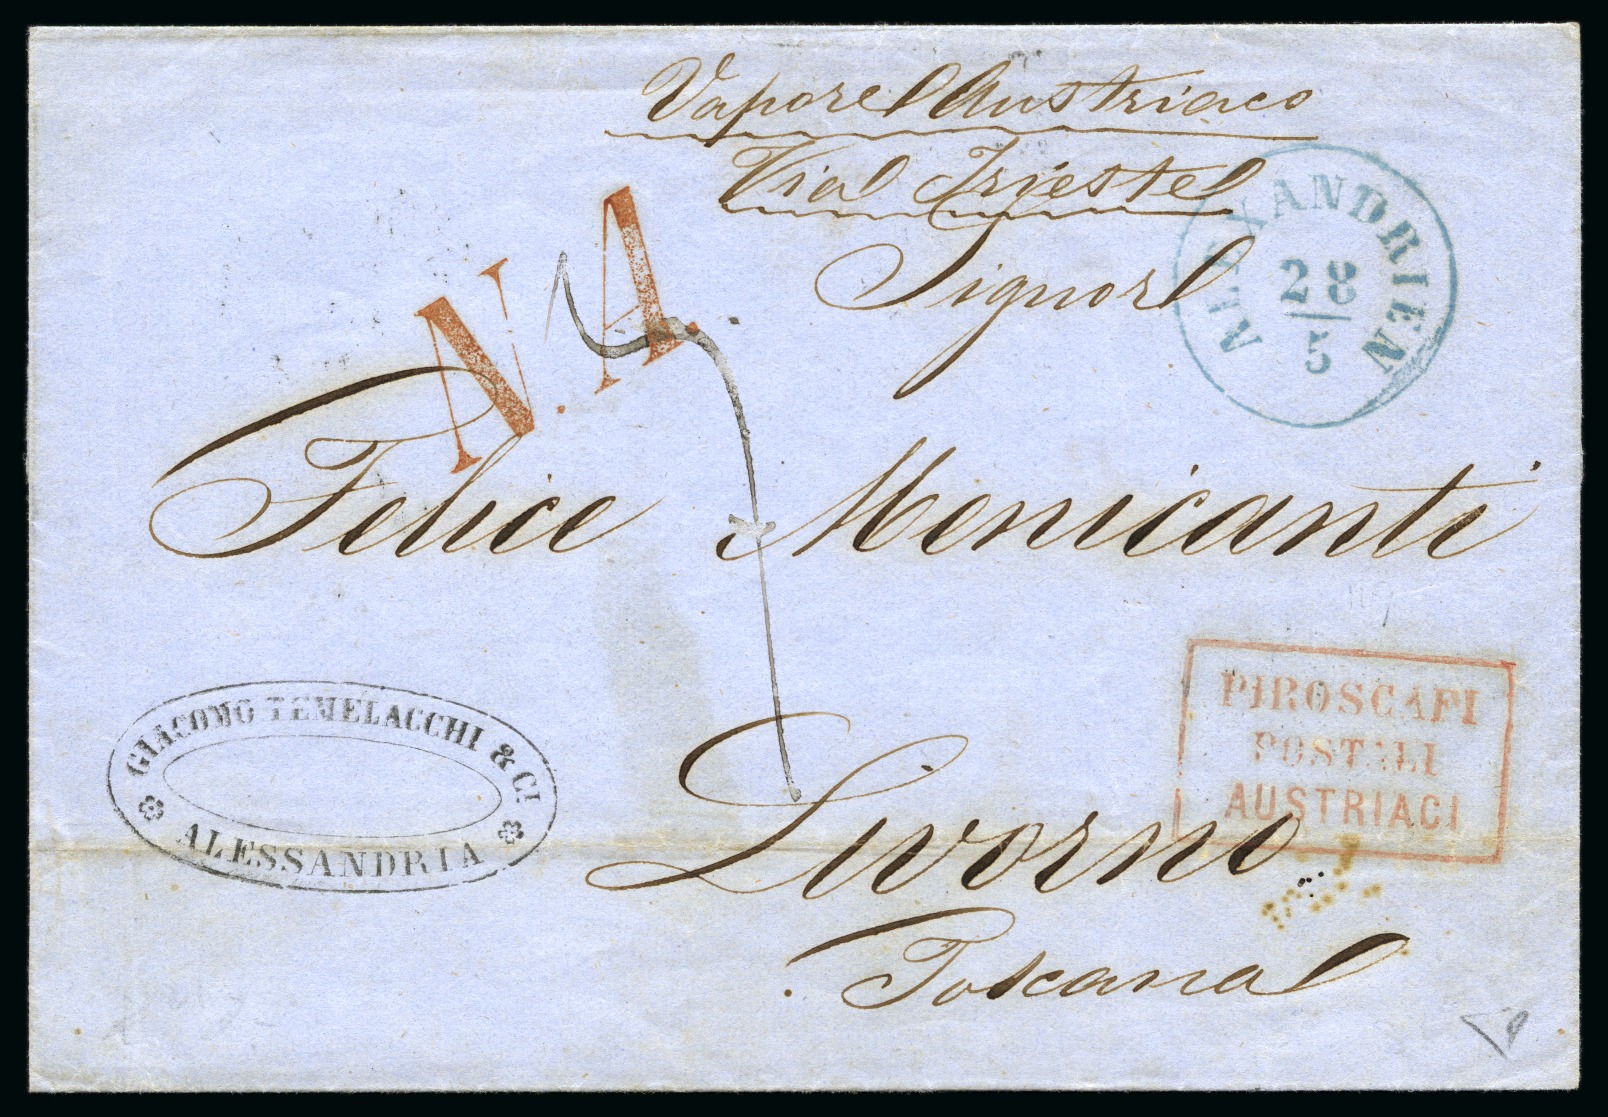 Vapore Austriaco
Via Trieste
ALEXANDRIEN
28
5
N.A.
Signor
Felice Menicanti
GIACOMO TEMELACCHI & C!
ALESSANDRIA
PIROSCAFI
POSTALI
AUSTRIACI
Livorno
Toscana